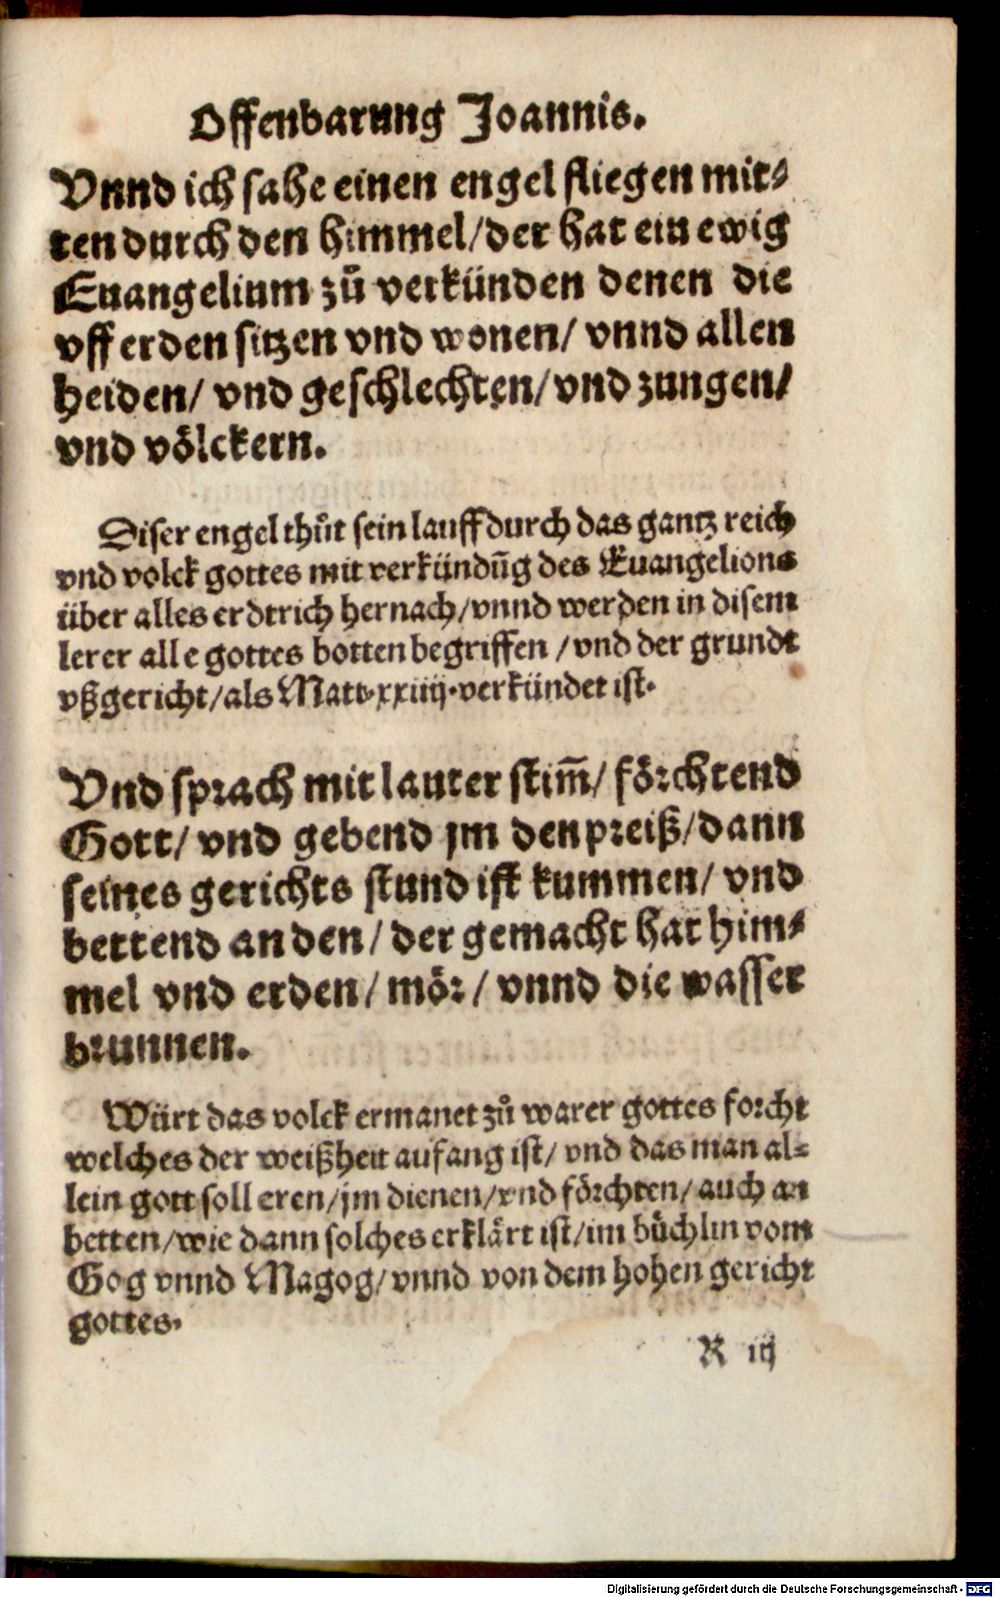 Offenbarung Joannis.
Vnnd ich sahe einen engel fliegen mit⸗
ten durch den himmel/der hat ein ewig
Euangelium zů verkünden denen die
vff erden sitzen vnd wonen/ vnnd allen
heiden/ vnd geschlechten/vnd zungen/
vnd völckern.
Diser engel thůt sein lauff durch das gantz reich
vnd volck gottes mit verkündūg des Euangelions
über alles erdtrich hernach/vnnd werden in disem
lerer alle gottes botten begriffen /vnd der grundt
vßgericht/als Matt.xxiiij.verkündet ist.
Vnd sprach mit lauter stim̄/ förchtend
Gott/ vnd gebend jm den preiß/dann
seines gerichts stund ist kummen/ vnd
bettend an den/ der gemacht hat him⸗
mel vnd erden/ mör/ vnnd die wasser
brunnen.
Würt das volck ermanet zů warer gottes forcht
welches der weißheit aufang ist/ vnd das man al⸗
lein gott soll eren/jm dienen/vnd förchten/ auch an
betten/wie dann solches erklärt ist/im bůchlin vom
Gog vnnd Magog/ vnnd von dem hohen gericht
gottes.
R iij
Digitalisierung gefördert durch die Deutsche Forschungsgemeinschaft - DFG